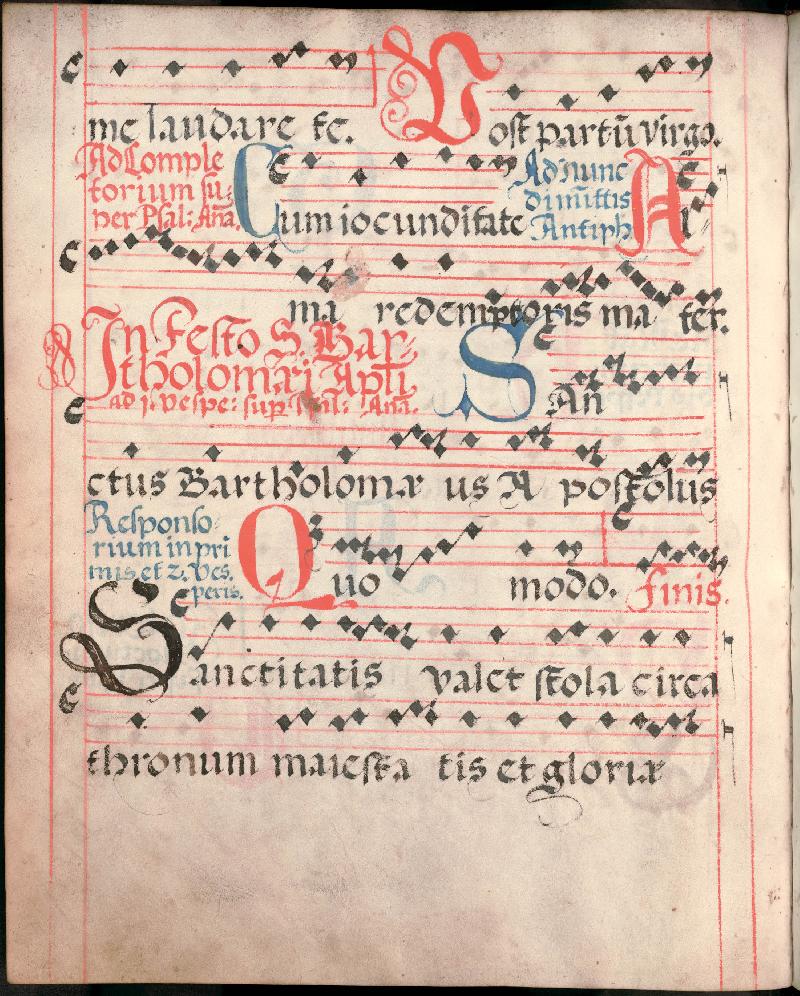 me laudare te. Post partū virgo.
Ad Comple
torium su:
per Psal: Aña.
Cum iocunditate
Ad nunc
dimittis
Antiph
Al
ma redemptoris ma ter.
In Festo S. Bar-
tholomæi Apti
ad j. Vespe: sup Psal: Aña.
SAn
ctus Bartholomæ us A postolus
Responso
rium in pri
mis et 2. Ves.
peris.
Quo modo. finis.
Sanctitatis valet stola circa
thronum maiesta tis et gloriæ